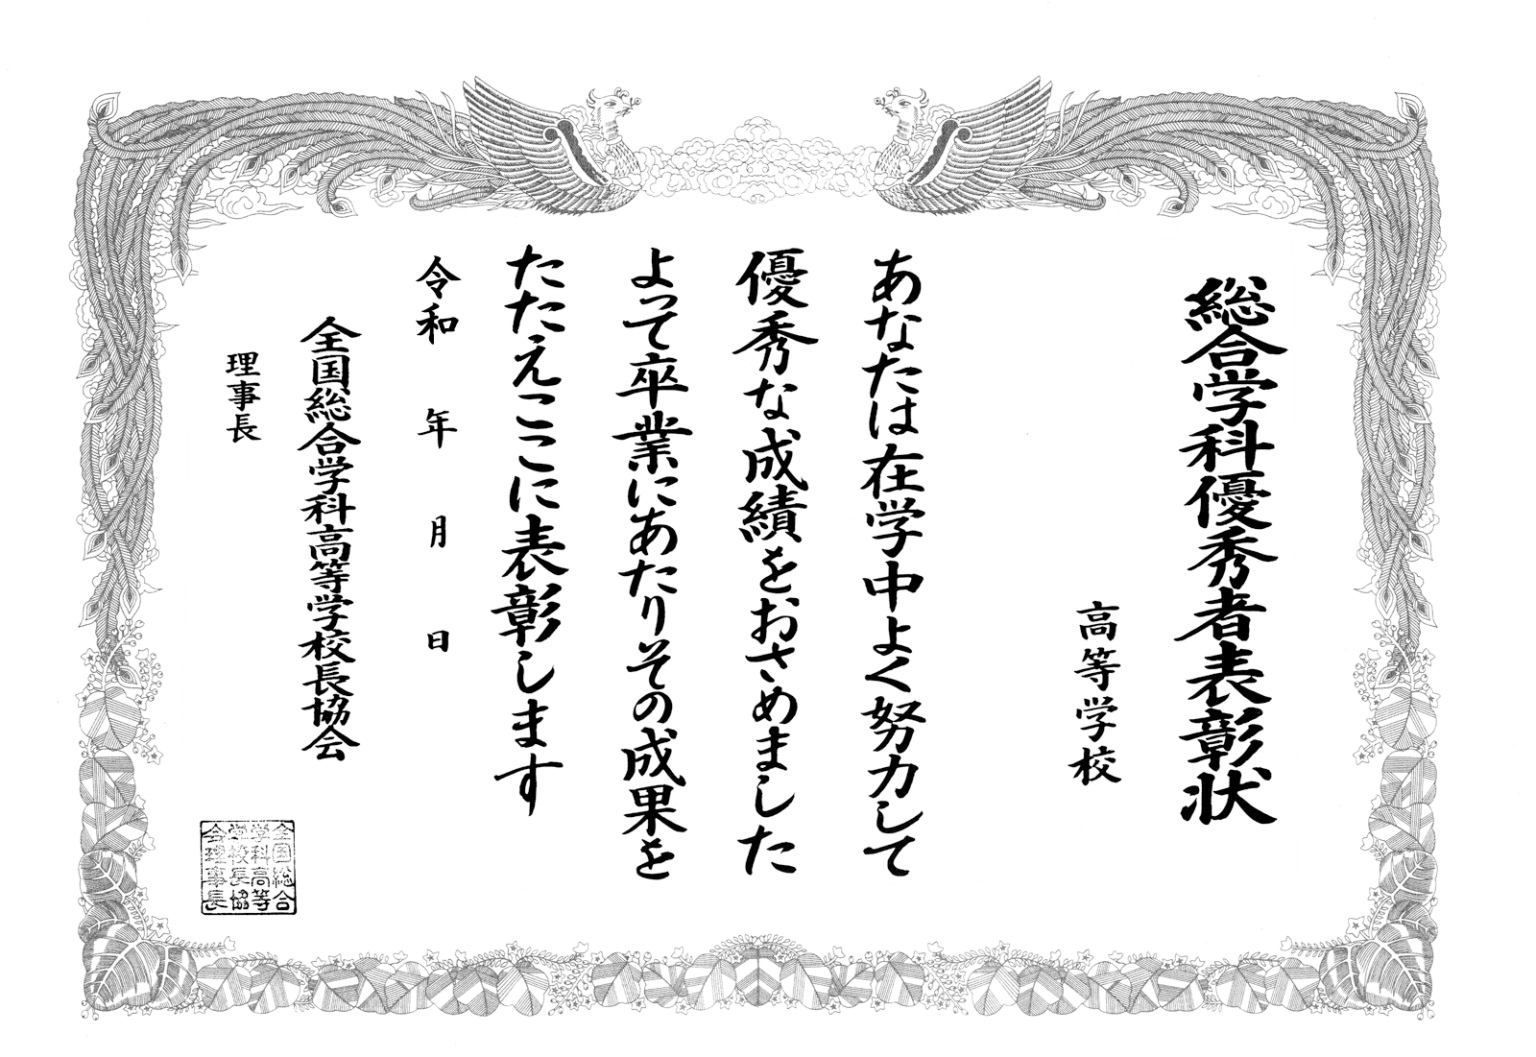 総合学科優秀者表彰状
高等学校
あなたは在学中よく努力して
優秀な成績をおさめました
よって卒業にあたりその成果を
たたえここに表彰します
令和　年　月　日
全国総合学科高等学校長協会
理事長
全国総合
学科高等
学校長協
会理事長